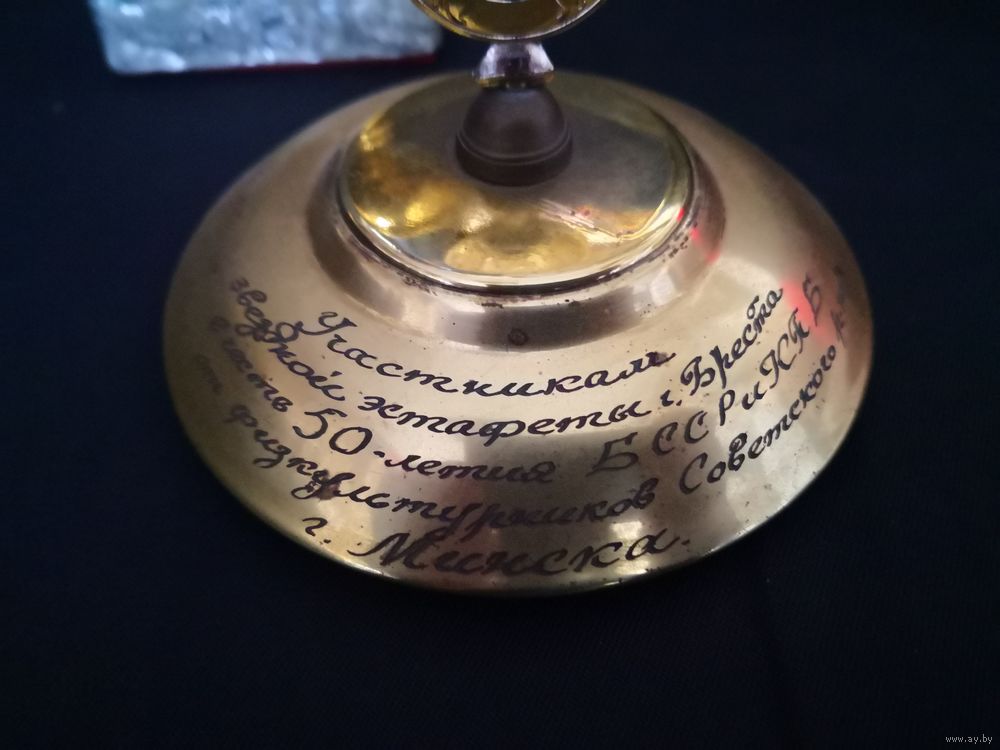 Участникам
звездной эстафеты г. Бреста
в честь 50-летия БССР и КПБ
от физкультурников Советского р-на
г. Минска.
www.ay.by